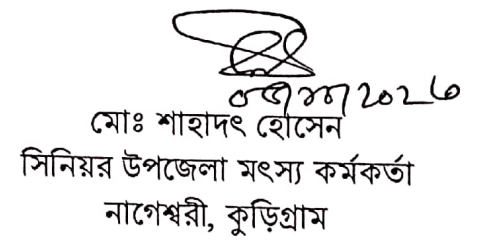 মোঃ শাহাদৎ হোসেন
সিনিয়র উপজেলা মৎস্য কর্মকর্তা
নাগেশ্বরী, কুড়িগ্রাম